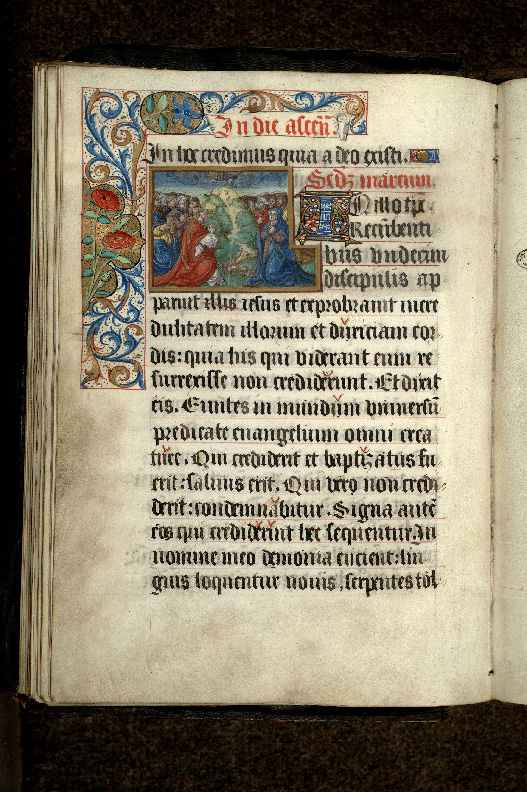 In die ascen̄
In hoc credimus quia a deo existi.
Scdʒ marcum.
IN illo tp̄r.
Recūbenti
bus vndecim
discipulis ap
paruit illis iesus et exprobrauit incre
dulitatem illorum et duriciam cor
dis: quia his qui viderant eum re
surrexisse non crediderunt. Et dixit
eis. Euntes in mundum vniuersū
predicate euangelium omni crea
ture. Qui crediderit et baptizatus fu
erit: saluus erit. Qui vero non credi
derit: condemnabitur. Signa autē
eos qui crediderint hec sequentur. In
nomine meo demonia eicient: lin
guis loquentur nouis, serpentes tol